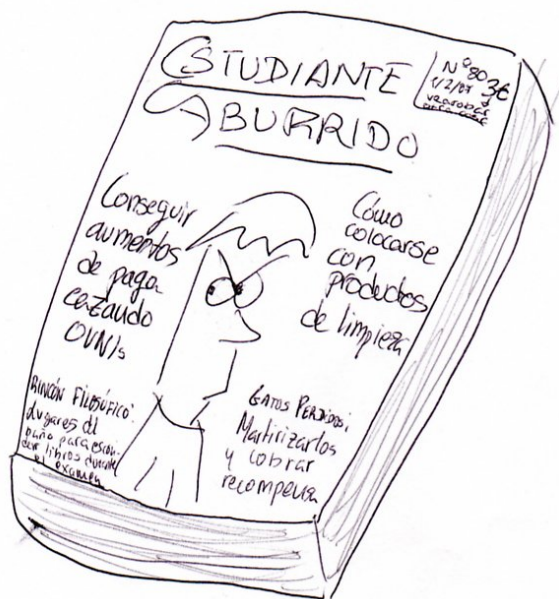 ESTUDIANTE
ABURRIDO
Nº 80
1/2/07
3€
Conseguir
aumentos
de paga
cazando
OVNIs
Cómo
colocarse
con
productos
de limpieza
RINCÓN FILOSÓFICO:
Lugares del
baño para escon-
der libros durante
el examen
GATOS PERDIDOS:
Martirizarlos
y cobrar
recompensa